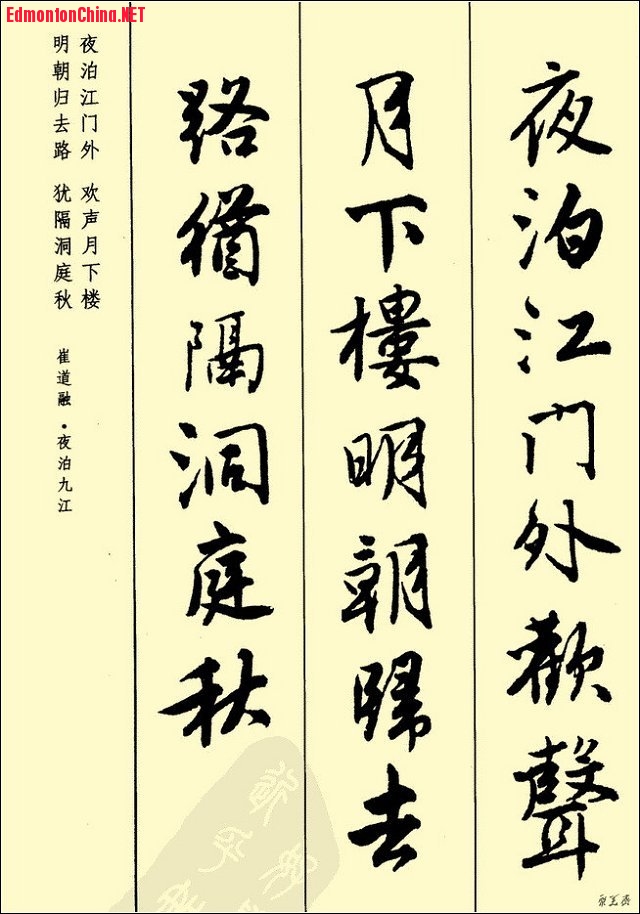 EdmontonChina.NET
夜泊江門外歡聲
月下樓明朝歸去
路猶隔洞庭秋
夜泊江门外 欢声月下楼
明朝归去路 犹隔洞庭秋
崔道融·夜泊九江